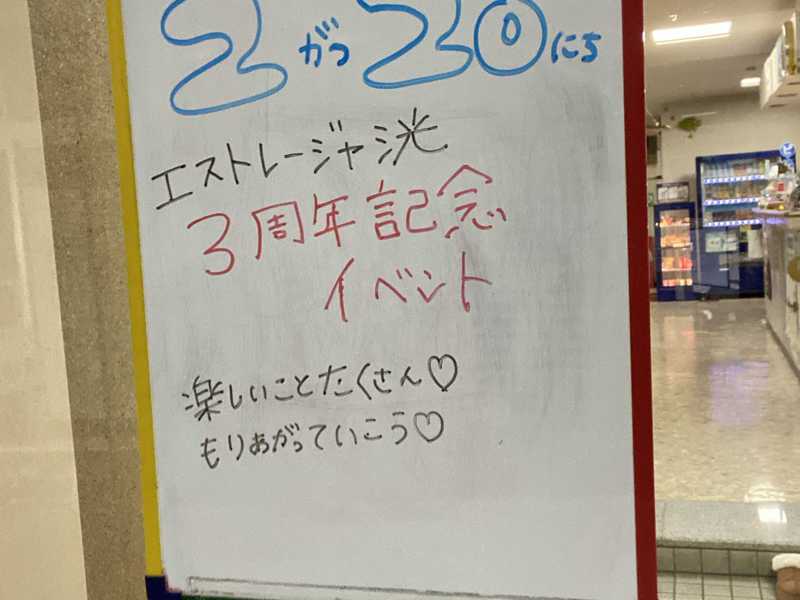 2がつ20にち
エストレージャ洸
3周年記念
イベント
楽しいことたくさん♡
もりあがっていこう♡